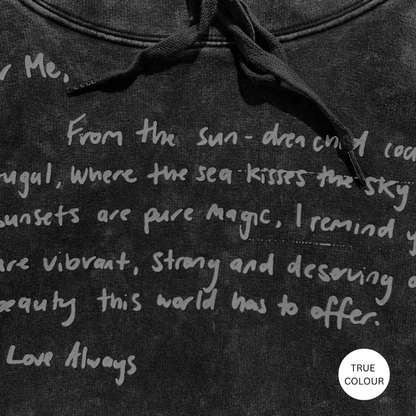 r Me,
From the sun-drenched coa
rugal, where the sea kisses the sky
sunsets are pure magic, I remind y
are vibrant, strong and deserving o
beauty this world has to offer.
Love Always
TRUE
COLOUR